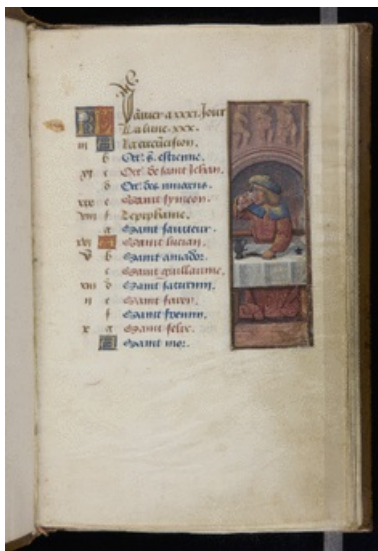 KL Januier a xxxi Jour
La lune .xxx.
iii A La circucision.
b Oct. s. estienne.
xi c Oct. de saint Jehan.
d Oct. des innocens.
xix e Saint symeon.
viii f Lepiphaine.
g Saint sauueur.
xvi A Saint lucian.
v b Saint amador.
c Saint guillaume.
xiii d Saint saturnin.
ii e Saint
f Saint
x g Saint felix.
A Saint mor.